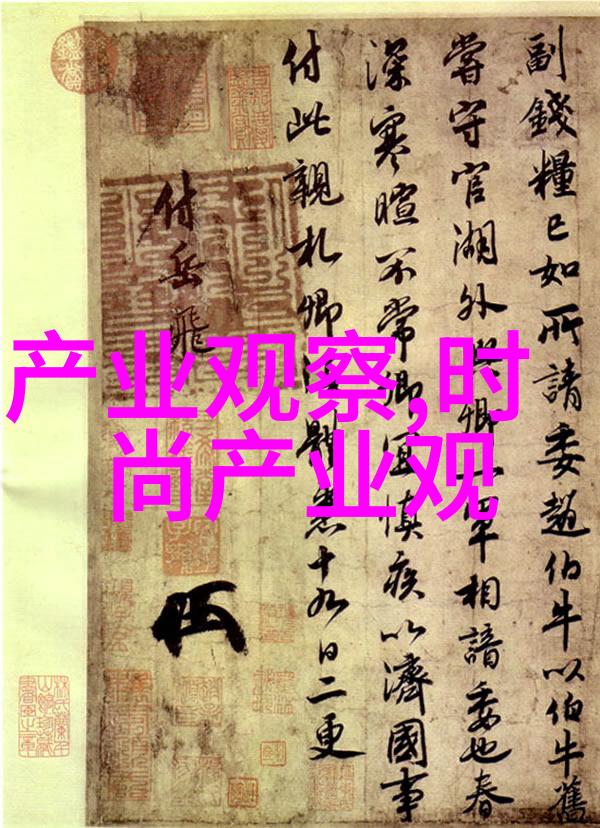 产业观察,时
尚产业观
副錢糧已如所請委趙伯牛以伯牛舊
嘗守官湖外與卿一軍相諳委也春
深寒暄不常卿宜慎疾以濟國事
付此親札卿須體悉十九日二更
付岳飛